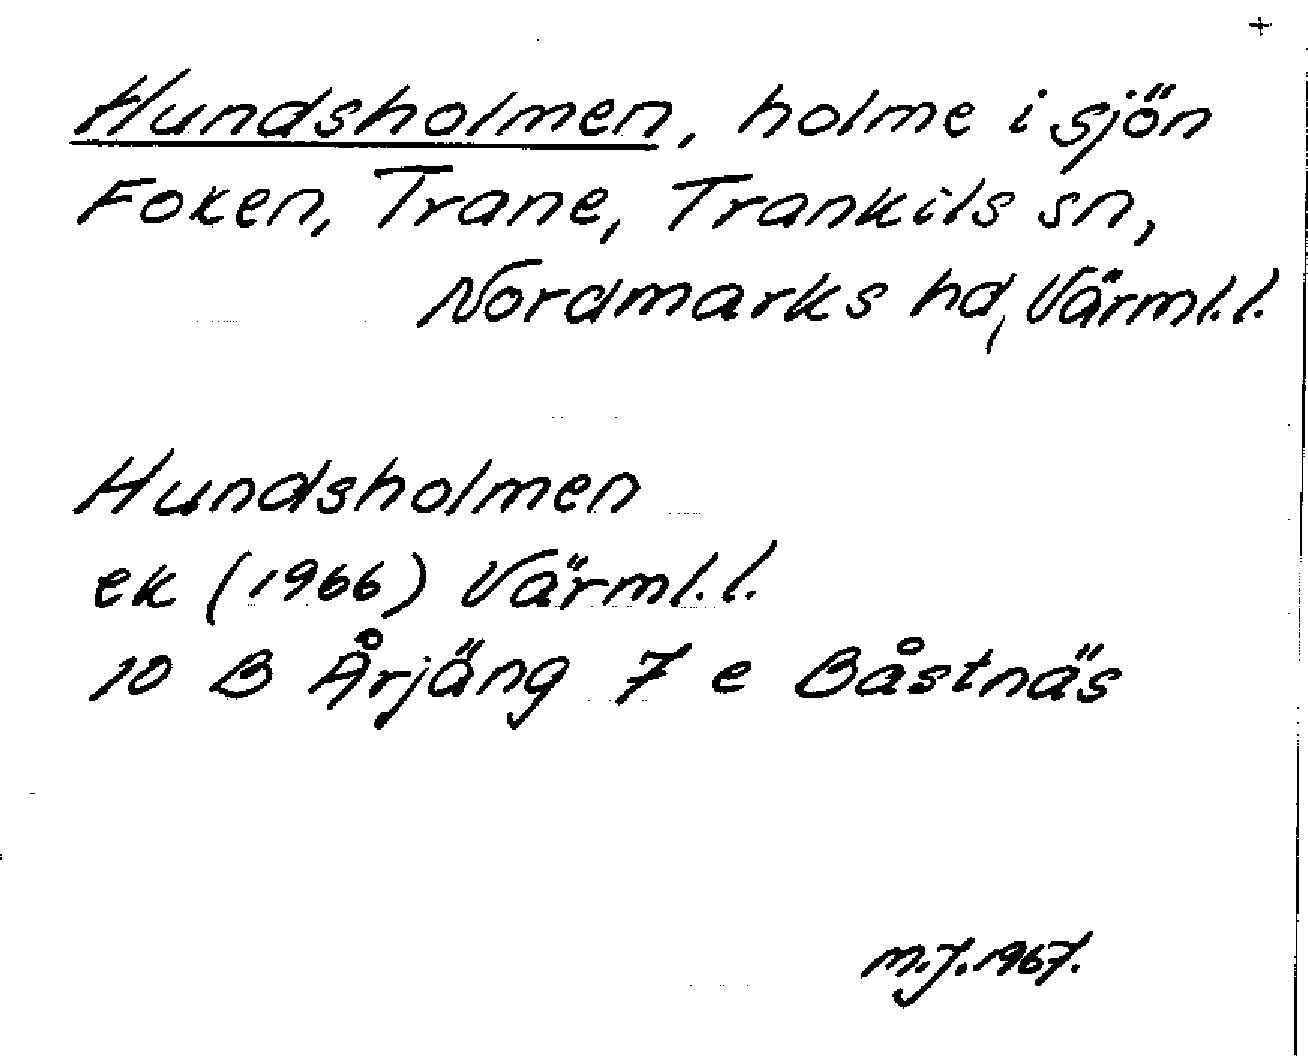 +
Hundsholmen, holme i sjön
Foken, Trane, Trankils sn,
Nordmarks hd, Värml.l.
Hundsholmen
ek (1966) Värml.l.
10 B Årjäng 7 e Båstnäs
M.J. 1967.